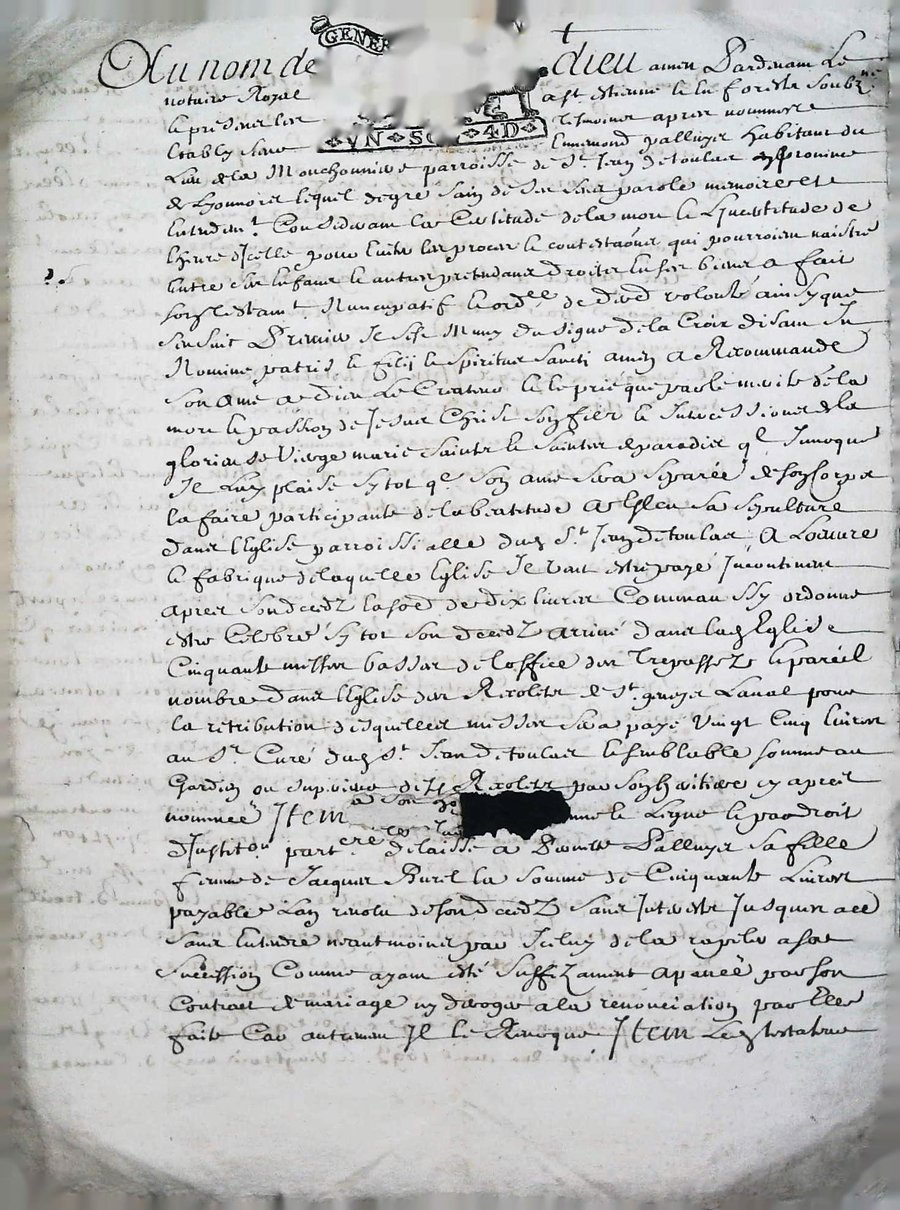 GENER
Au nom de dieu amen Pardevant Le
notaire Royal a st. estienne le la foreste soubz.né
le presenter les tesmoins apres nommere
Estably seure Ennemond palluyer habitant du
Lieu de la Monchonniere parroisse de St. Jean de toulas
VN SOL 4D
de Lionnois lequel de gré sain de ses sens parole memoire et
entendem.t Considerant la Certitude de la mort le Lincertitude de
lheure dicelle pour Euiter les proces le contestaõns qui pourroient naistre
Entre ses Enfans le autres pretendans droits En ses biens a fait
son testam.t Nuncupatif le ordre de dre volonté ainsy que
sensuit Premier Il sest Muny du signe de la Croix disant In
Nomine patris le filij le spiritus sancti amen a Recommandé
son ame a dieu Le Createur le le prie que par le merite de la
mort le passion de Jesus Christ son fils le Intercessions de la
glorieuse Vierge marie saints le saintes de paradis q.l Inuoque
Il Luy plaise sy tot q.l son ame sera separée de son corps
la faire participante de la beatitude a Esleu sa sepulture
dans lEglise parroissialle dud St. Jean de toulas A Loeuure
le fabrique de laquelle Eglise Il veut estre payé Incontinent
apres son decedz la so.e de dix liures Comme aussy ordonne
estre Celebré sy tot son decedz arriué dans lad Eglise
Cinquante messes basses de loffice des Trepassezs le pareil
nombre dans lEglise des Recolets de St. genys Laual pour
la retribution desquelles messes sera payé Vingt Cinq liures
au Sr. Curé dud St. Jean de toulas le semblable somme au
Gardien ou superieur desd Recolets par son heritiere cy apres
nommée Item nne le Legue le par droit
dInstit.on part.ere delaisse a Pallluyer sa fille
femme de Jacques Burel la somme de Cinquante Liures
payable Lan reuolu de son decedz sans Interests Jusques a ce
sans Entendre neantmoins par Iceluy de la rapeler a sa
succession Comme ayant esté suffizament apanée par son
Contrat de mariage ny deroger a la renonciation par Elle
faite Car autrement Il le Reuoque Item Led testateur